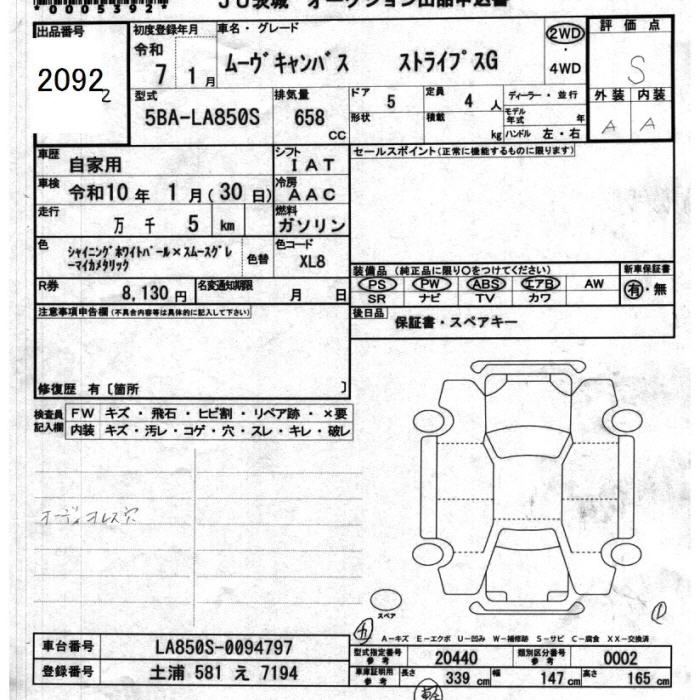 *00053921*
JU茨城 オークション出品申込書
出品番号
20922
初度登録年月
令和
7 1月
車名・グレード
ムーヴキャンバス ストライプスG
2WD・4WD
評価点
S
外装 内装
A A
型式
5BA-LA850S
排気量
658 CC
ドア 5
定員 4 人
ディーラー・並行
形状
積載 kg
モデル年式 年
ハンドル 左・右
車歴 自家用
シフト IAT
セールスポイント(正常に機能するものに限ります)
車検 令和10年 1月(30日)
冷房 AAC
走行 万 千 5 km
燃料 ガソリン
色 シャイニングホワイトパール×スムースグレーマイカメタリック
色替
色コード XL8
装備品(純正品に限り○をつけてください)
新車保証書
PS PW ABS エアB AW
有・無
SR ナビ TV カワ
R券 8,130円
名変通知期限 月 日
後日品 保証書・スペアキー
注意事項申告欄(不具合内容等は具体的に記入して下さい)
修復歴 有〔箇所 〕
検査員記入欄
FW キズ・飛石・ヒビ割・リペア跡・×要
内装 キズ・汚レ・コゲ・穴・スレ・キレ・破レ
オーディオレス穴
スペア
A-キズ E-エクボ U-凹み W-補修跡 S-サビ C-腐食 XX-交換済
車台番号 LA850S-0094797
登録番号 土浦 581 え 7194
型式指定番号 参考 20440
類別区分番号 参考 0002
車庫証明用 参考 長さ 339cm 幅 147cm 高さ 165cm